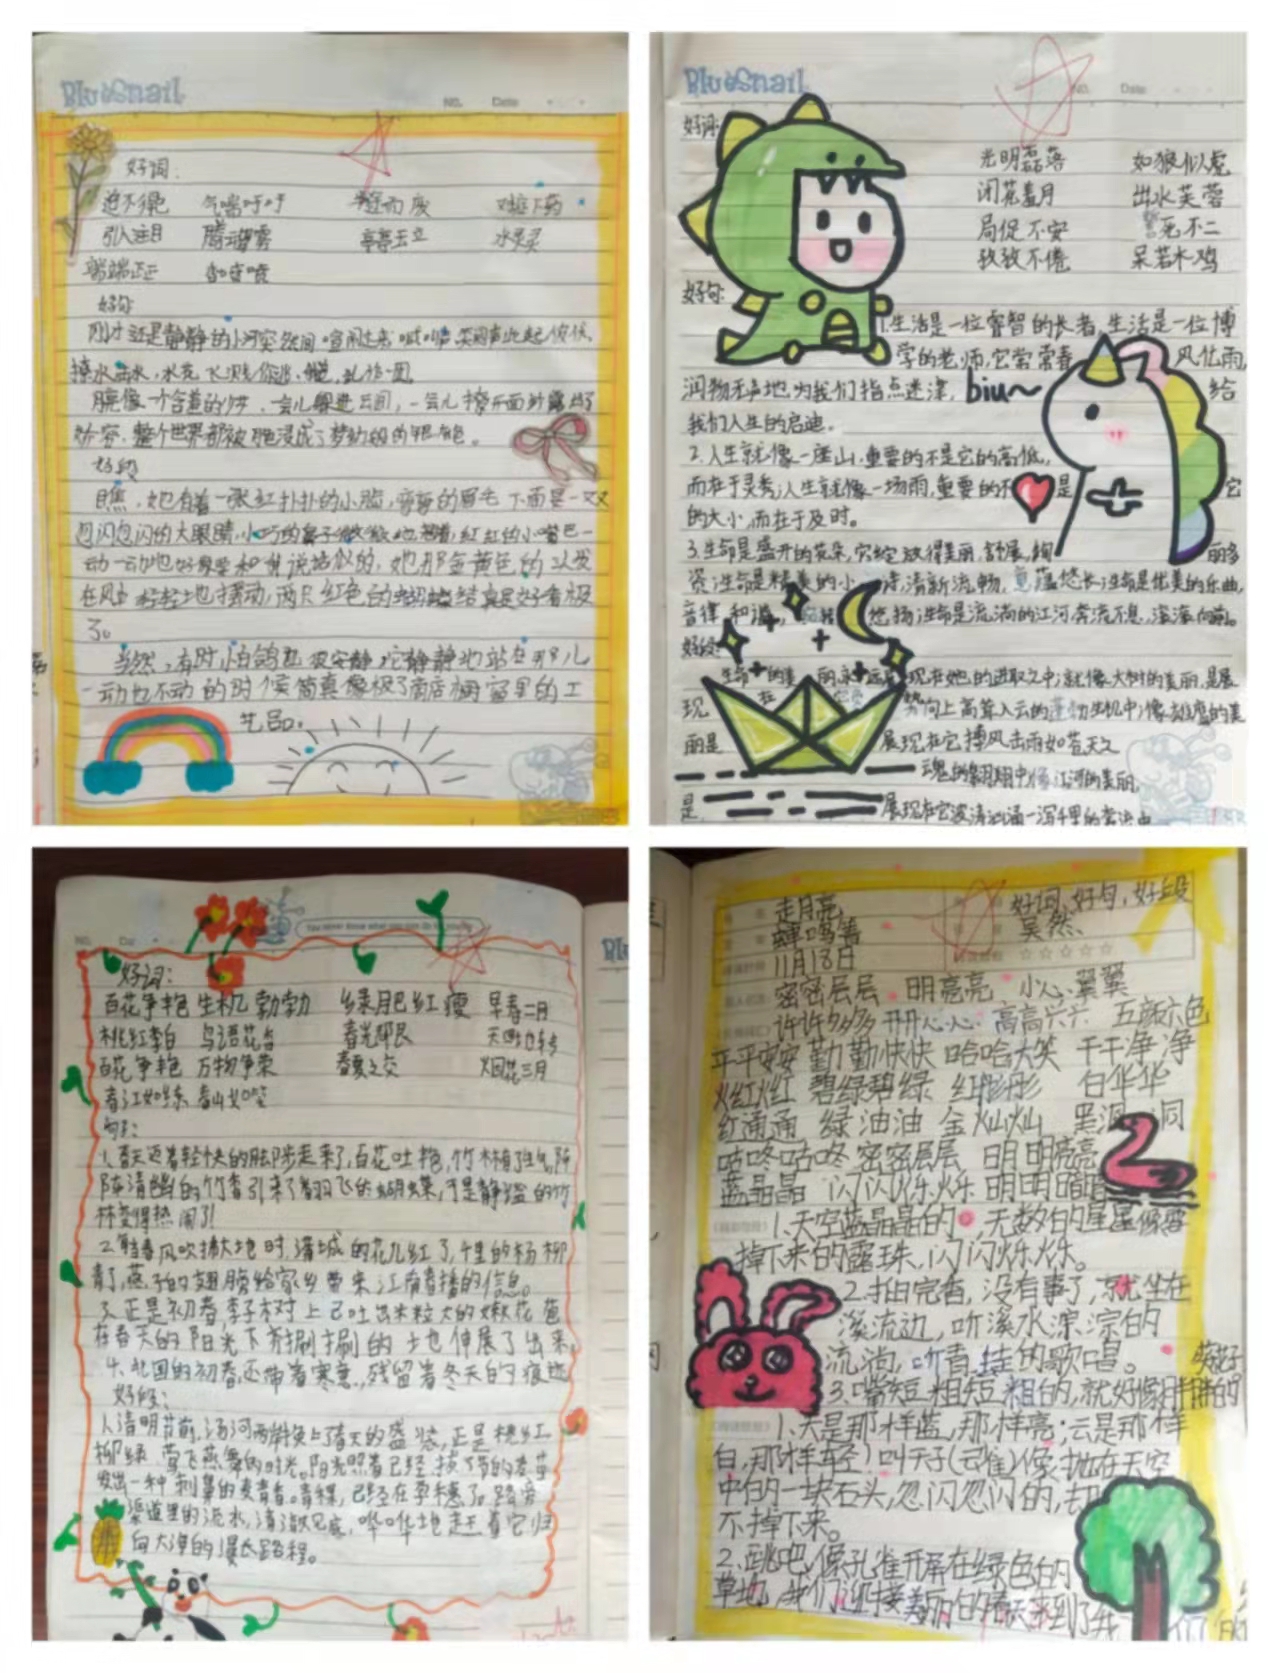 BlueSnail
NO. Date
好词:
迫不得已 气喘吁吁 半途而废 对症下药
引人注目 腾云驾雾 亭亭玉立 水灵灵
端端正正 香喷喷
好句
刚才还是静静的小河突然间喧闹起来 喊叫声 笑闹声此起彼伏,
撩水击水,水花飞溅 你追 我赶 乱作一团
月亮像一个含羞的少女,一会儿躲进云间,一会儿撩开面纱露出了
娇容,整个世界都被月色浸成了梦幻般的银色。
好段
瞧,她有着一张红扑扑的小脸,弯弯的眉毛下面是一双
忽闪忽闪的大眼睛,小巧的鼻子微微地翘着,红红的小嘴巴一
动一动地好像要和我说话似的,她那金黄色的头发
在风中轻轻地摆动,两只红色的蝴蝶结真是好看极
了。
当然,有时小白鸽也很安静,它静静地站在那儿
一动也不动的时候简直像极了商店橱窗里的工
艺品。
BlueSnail
NO. Date
好词:
光明磊落 如狼似虎
闭花羞月 出水芙蓉
局促不安 誓死不二
孜孜不倦 呆若木鸡
好句:
1.生活是一位睿智的长者,生活是一位博
学的老师,它常常春风化雨,
润物无声地为我们指点迷津, biu~ 给
我们人生的启迪。
2.人生就像一座山,重要的不是它的高低,
而在于灵秀;人生就像一场雨,重要的不是它
的大小,而在于及时。
3.生命是盛开的花朵,它绽放得美丽,舒展,绚丽多
资;生命是精美的小诗,清新流畅,意蕴悠长;生命是优美的乐曲,
音律和谐,宛转悠扬;生命是流淌的江河,奔流不息,滚滚向前。
好段:
生命的美丽,永远展现在她的进取之中;就像大树的美丽,是展
现在它势向上高耸入云的蓬勃生机中;像雄鹰的美
丽是展现在它搏风击雨如苍天之
魂的翱翔中;像江河的美丽,
是展现在它波涛汹涌一泻千里的奔流中
NO. Da
You never know what you can do till you try
好词:
百花争艳 生机勃勃 绿肥红瘦 早春二月
桃红李白 鸟语花香 春光
百花争艳 万物争荣 春夏之交 烟花三月
春江如练 春山如笑
句子:
1.春天迈着轻快的脚步走来了,百花吐艳,竹林有了生气,阵
阵清幽的竹香引来了翩翩飞的蝴蝶,于是静谧的竹
林变得热闹了!
2.每当春风吹拂大地时,满城的花儿红了,千里的杨柳
青了,燕子的翅膀给家乡带来江南春播的信息。
3.正是初春,李子树上已吐出米粒大的嫩花苞
在春天的阳光下,齐刷刷的 也伸展了出来
4.北国的初春,还带着寒意,残留着冬天的痕迹
好段:
1.清明节前,汤河两岸换上了春天的盛装,正是桃红
柳绿、莺飞燕舞的时光。阳光照着已经拔了节的麦苗
发出一种刺鼻的麦青香。青稞,已经在孕穗了。路旁
渠道里的流水,清澈见底,哗哗地走着它归
向大海的漫长路程。
走月亮 好词、好句,好段
吴然
11月18日
密密层层 明亮亮 小心翼翼
许许多多 开开心心 高高兴兴 五颜六色
平平安安 勤勤快快 哈哈大笑 干干净净
火红火红 碧绿碧绿 红彤彤 白华华
红通通 绿油油 金灿灿 黑洞洞
咕咚咕咚 密密层层 明明亮亮
蓝晶晶 闪闪烁烁 明明暗暗
1.天空蓝晶晶的,无数的星星像要
掉下来的露珠,闪闪烁烁。
2.拍完香,没有事了,就坐在
溪流边,听溪水淙淙的
流淌,听青蛙的歌唱。
3.嘴短粗短粗的,就好像胖胖的
1.天是那样蓝,那样亮;云是那样
白,那样轻!叫天子(云雀)像抛在天空
中的一块石头,忽闪忽闪的,却
不掉下来。
2.跳吧,像孔雀开屏在绿色的
草地,我们迎接美丽的春天来到了